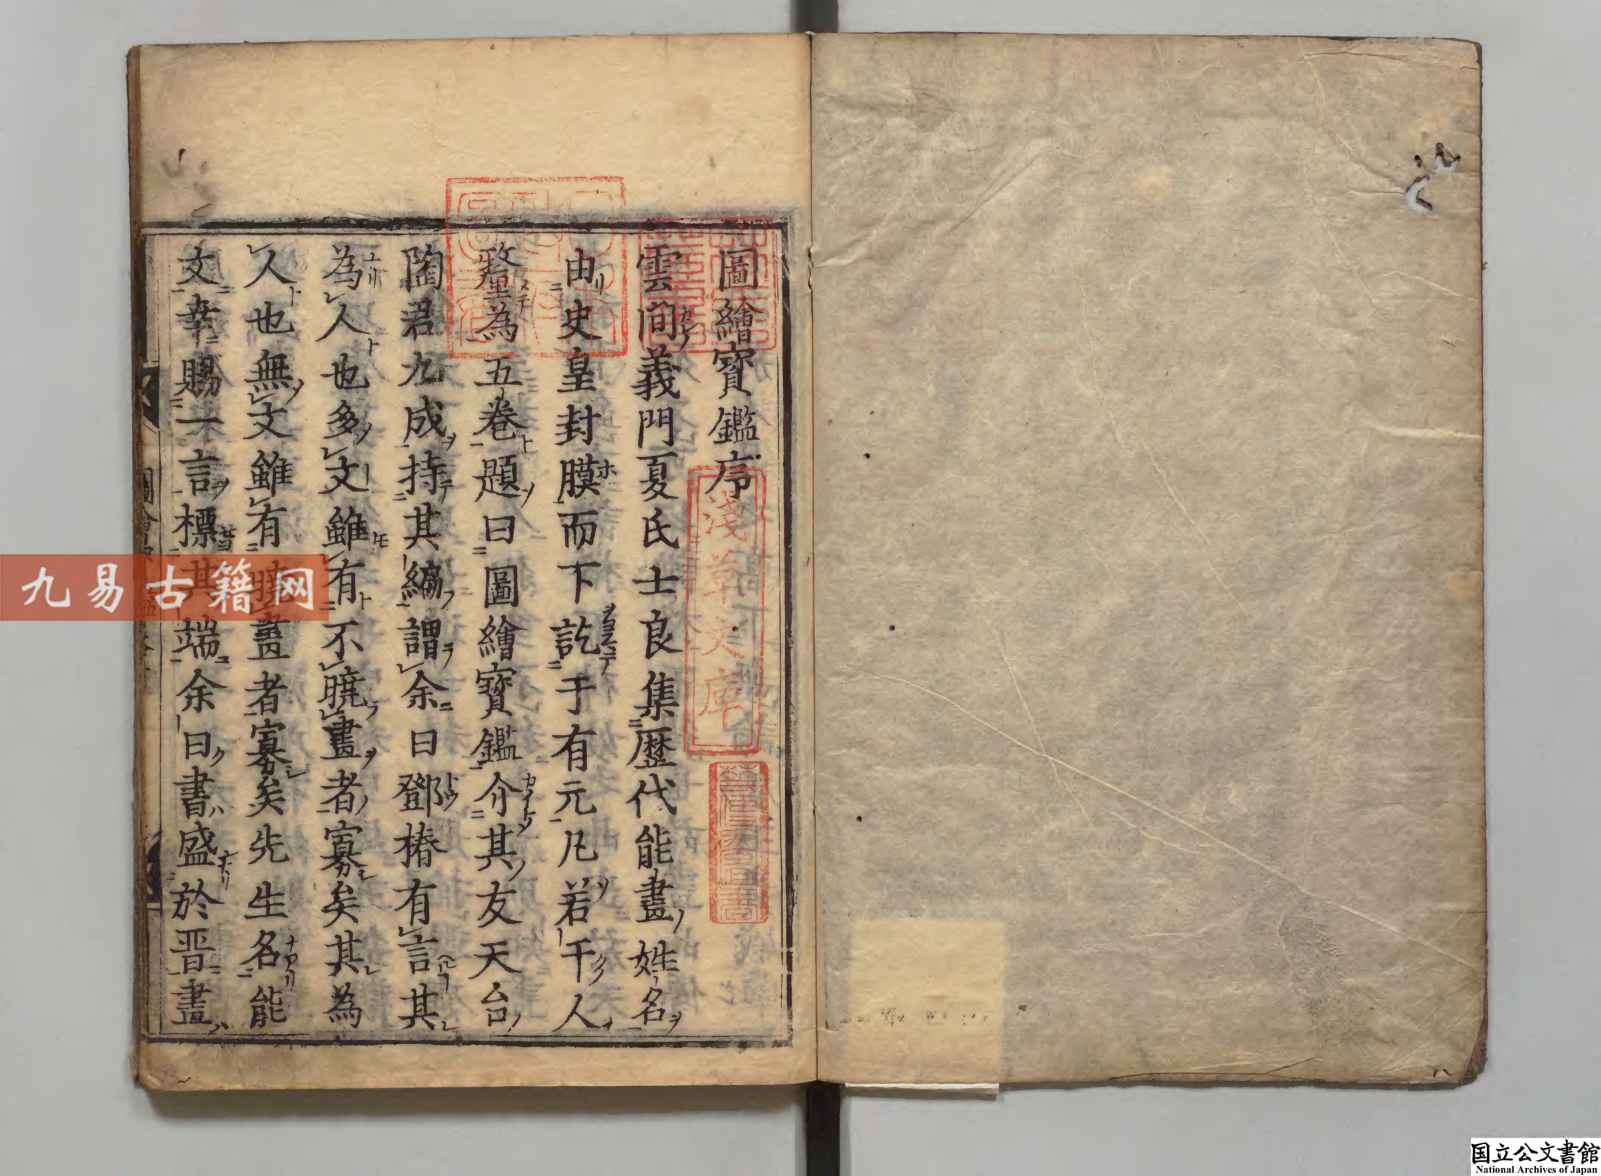 圖繪寶鑑序
雲間義門夏氏士良集歷代能畫姓名
由史皇封膜而下訖于有元凡若干人
釐為五卷題曰圖繪寶鑑介其友天台
陶君九成持其編謂余曰鄧椿有言其
為人也多文雖有不曉畫者寡矣其為
人也無文雖有曉畫者寡矣先生名能
文幸賜一言標其端余曰書盛於晋畫
淺草文庫
九易古籍网
国立公文書館
National Archives of Japan